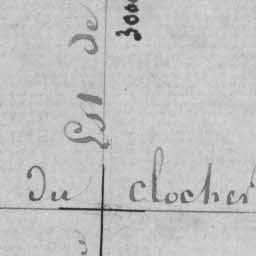 Est de
3000
du clocher